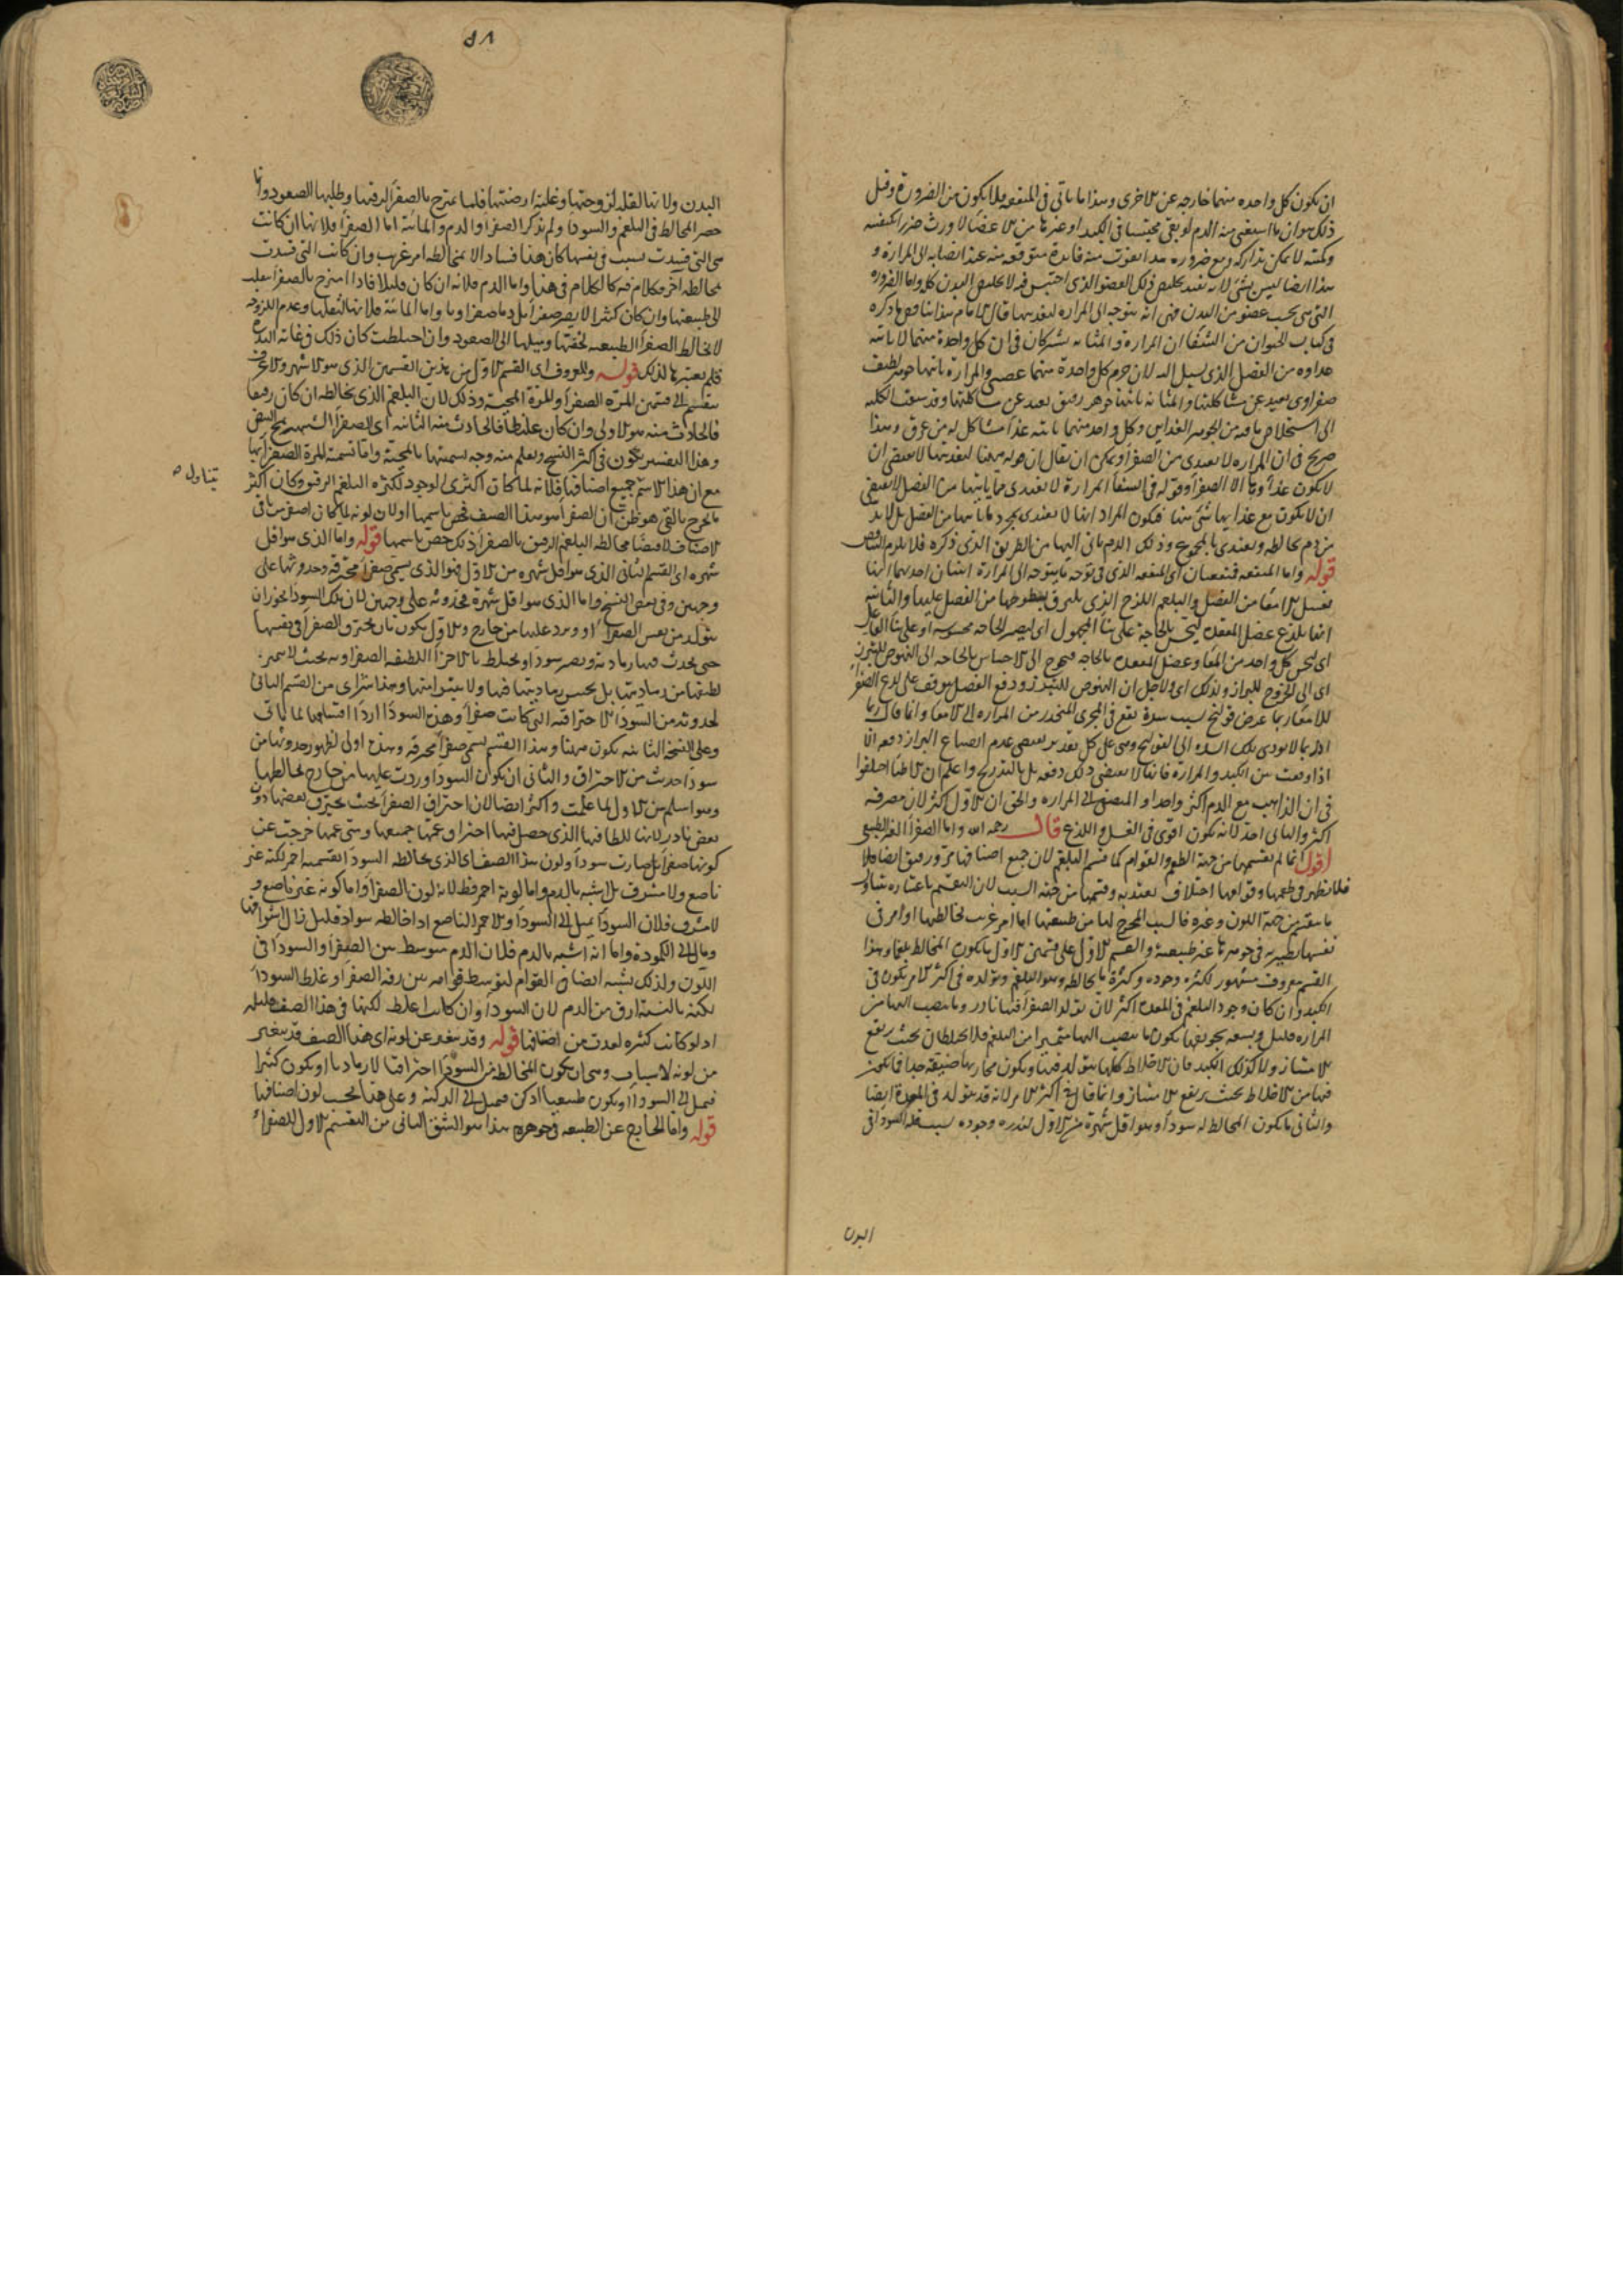 ان يكون كل واحده منهما خارجه عن الاخرى وهذا ما ياتي في المنفعه فلا يكون من الضرورة وقيل
ذلك هو ان ما استغنى منه الدم لو بقي محتبسا في الكبد او غيرها من الاعضا لاورث ضررا
لا يمكن تداركه ومع ضرره هذا يفوت منه فايدة متوقعه منه عند انصبابه الى المرارة و
هذا ايضا ليس بشئ لانه يفيد تخليص ذلك العضو الذي احتبس فيه لا تخليص البدن كله واما الضروره
التي هي بحسب عضو من البدن فهي انه يتوجه الى المراره ليغذيها قال الامام هذا يناقض ما ذكره
في كتاب الحيوان من الشفا ان المرارة والمثانه يشتركان في ان كل واحدة منهما لا ياتيه
غذاوه من الفضل الذي يسيل اليه لان جرم كل واحدة منهما عصبي والمرارة ياتيها جوهر لطيف
صفراوي بعيد عن مشاكلتها والمثانه ياتيها جوهر رقيق بعيد عن مشاكلتها وقد سبقت الكليه
الى استخلاص ما فيه من الجوهر الغذايي وكل واحد منهما ياتيه غذا مشاكل له من عرق وهذا
صريح في ان المراره لا تغتدي من الصفرا ويمكن ان يقال ان قوله ههنا ليغذيها لا يقتضي ان
لا يكون غذاوها الا الصفرا وقوله في الشفا المرارة لا تغتدي مما ياتيها من الفضل لا يقتضي
ان لا يكون مع غذايها شئ منها فيكون المراد انها لا تغتدي بمجرد ما ياتيها من الفضل بل لا بد
من دم يخالطه ويغتدي بالمجموع وذلك الدم ياتي اليها من الطريق الذي ذكره فلا يلزم التناقض
قوله واما المنفعه فمنفعتان اي المنفعه الذي في توجه ما يتوجه الى المرارة اثنتان احديهما انها
تغسل الامعا من الفضل والبلغم اللزج الذي يلتزق بسطوحها من الفضل عليها والثانيه
انها تلذع عضل المقعده ليحس بالحاجة على بنا المجهول اي ليصير الحاجه محسوسه او على بنا الفاعل
اي ليحس كل واحد من المعا وعضل المقعده بالحاجه فيحوج الى الاحساس بالحاجه الى النهوض للتبرز
اي الى الخروج للبراز ولذلك اي ولاجل ان النهوض للتبرز ودفع الفضل موقف على لذع الصفرا
للامعا ربما عرض قولنج لسبب سدة تقع في المجرى المنحدر من المراره الى الامعا وانما قال ربما
اذ ربما لا يودي تلك السده الى القولنج وهي على كل تقدير يقتضي عدم انصباغ البراز دفعه اما
اذا وقعت بين الكبد والمرارة فانها لا يقتضي ذلك دفعه بل بالتدريج واعلم ان الاطبا اختلفوا
في ان الذاهب مع الدم اكثر واحد او المتصفى الى المراره والحق ان الاول اكثر لان مصرفه
اكثر والثاني احد لانه يكون اقوى في الغسل واللذع قال رحمه الله واما الصفرا الغير الطبيعي
اقول انما لم يقسمها من جهة الطعم والقوام كما قسم البلغم لان جميع اصنافها مر ورقيق ايضا فلا
فلا يظهر في طعمها وقوامها اختلاف يعتد به وقسمها من جهه السبب لان التقسيم باعتباره يتناول
ما يتغير من جهة اللون وغيره فالسبب المخرج لها من طبيعتها اما امر غريب يخالطها او امر في
نفسها يصير به في جوهرها غير طبيعيه والقسم الاول على قسمين الاول ما يكون المخالط بلغما وهذا
القسم معروف مشهور لكثره وجوده وكثرة ما يخالطه وهو البلغم وتولده في اكثر الامر يكون في
الكبد وان كان وجود البلغم في المعده اكثر لان تولد الصفرا فيها نادر وما ينصب اليها من
المراره قليل وبسعه تجويفها يكون ما ينصب اليها متميزا من البلغم فلا يختلطان بحيث يرتفع
الامتياز ولا كذلك الكبد فان الاخلاط كلها يتولد فيها ويكون مجاريها ضيقه جدا فيكون
فيها من الاختلاط بحيث يرتفع الامتياز وانما قال في اكثر الامر لانه قد يتولد في المعدة ايضا
والثاني ما يكون المخالط له سودا وهو اقل شهرة من الاول لندره وجوده لسبب قله السودا في
البدن
٥٨
البدن ولانها لثقلها ولزوجتها وغلبة ارضيتها فلما تمتزج بالصفرا لرقتها وطلبها الصعود وانما
حصر المخالط في البلغم والسودا ولم يذكر الصفرا والدم والمائية اما الصفرا فلانها ان كانت
هي التي فسدت بسبب في نفسها كان هذا فسادا لا بمخالطه امر غريب وان كانت التي فسدت
بمخالطه اخر فالكلام فيه كالكلام في هذا واما الدم فلانه ان كان قليلا فاذا امتزج بالصفرا انقلب
الى طبيعتها وان كان كثيرا لا يصير صفرا بل دما صفراويا واما المائية فلانها لثقلها وعدم اللزوجه
لا تخالط الصفرا الطبيعيه لخفتها وميلها الى الصعود وان اختلطت كان ذلك في غاية الندره
فلم يعتبرها لذلك قوله والمعروف اي القسم الاول من هذين القسمين الذي هو الاشهر والاعرف
ينقسم الى قسمين المرة الصفرا والمرة المحية وذلك لان البلغم الذي يخالطه ان كان رقيقا
فالحادث منه هو الاولى وان كان غليظا فالحادث منه الثانيه اي الصفرا الشبيهه بمح البيض
وهذا التفسير يكون في اكثر النسخ ويعلم منه وجه تسميتها بالمحية واما تسميه المرة الصفرا بها
مع ان هذا الاسم جميع اصنافها فلانه لما كان اكثري الوجود لكثره البلغم الرقيق وكان اكثر
ما يخرج بالقي هو ظن ان الصفرا هو هذا الصنف فخص باسمها او لان لونه لما كان اصفر من باقي
الاصناف لاقتضا مخالطه البلغم الرقيق بالصفرا ذلك خص باسمها قوله واما الذي هو اقل
شهره اي القسم الثاني الذي هو اقل شهره من الاول فهو الذي يسمى صفرا محترقه وحدوثها على
وجهين وفي بعض النسخ واما الذي هو اقل شهرة فحدوثه على وجهين لان تلك السودا يجوز ان
يتولد من نفس الصفرا او ورد عليها من خارج والاول يكون بان يحترق الصفرا في نفسها
حتى يحدث فيها رماديه ويصير سودا ويختلط بالاجزا اللطيفه الصفراويه بحيث لا يتميز
لطيفها من رماديتها بل يحتبس رماديتها فيها ولا يتميز منها وهذا شر اي من القسم الثاني
لحدوثه من السودا الاحتراقيه التي كانت صفرا وهذه السودا اردا اقسامها لما ياتي
وعلى النسخة الثانيه يكون ههنا وهذا القسم يسمى صفرا محترقه وهذه اولى لظهور حدوثها من
سودا حدثت من الاحتراق والثاني ان يكون السودا وردت عليها من خارج فخالطها
وهو اسلم من الاول لما علمت واكثر ايضا لان احتراق الصفرا بحيث يحترق بعضها دون
بعض نادر لانها للطافتها الذي حصل فيها احتراق عمها جميعها ومتى عمها خرجت عن
كونها صفرا بل صارت سودا ولون هذا الصنف اي الذي يخالطه السودا بقسميه احمر لكنه غير
ناصع ولا مشرق بل اشبه بالدم واما لونه احمر فقط لانه لون الصفرا واما كونه غير ناصع و
لا مشرق فلان السودا تميل الى السودا والاحمر الناصع اذا خالطه سواد قليل زال اشراقها
ومال الى الكمودة واما انه اشبه بالدم فلان الدم متوسط بين الصفرا والسودا في
اللون ولذلك يشبه ايضا في القوام لتوسط قوامه بين رقه الصفرا وغلظ السودا
لكنه بالنسبة ارق من الدم لان السودا وان كانت اغلظ لكنها في هذا الصنف قليله
اذ لو كانت كثيره لعدت من اصنافها قوله وقد يتغير عن لونه اي هذا الصنف قد يتغير
من لونه لاسباب وهي ان يكون المخالط من السودا احتراقيا لا رماديا او يكون كثيرا
فيميل الى السودا او يكون طبيعيا ادكن فيميل الى الدكنه وعلى هذا بحسب لون اصنافها
قوله واما الخارج عن الطبيعه في جوهره هذا هو الشق الثاني من التقسيم الاول للصفرا
يتناول